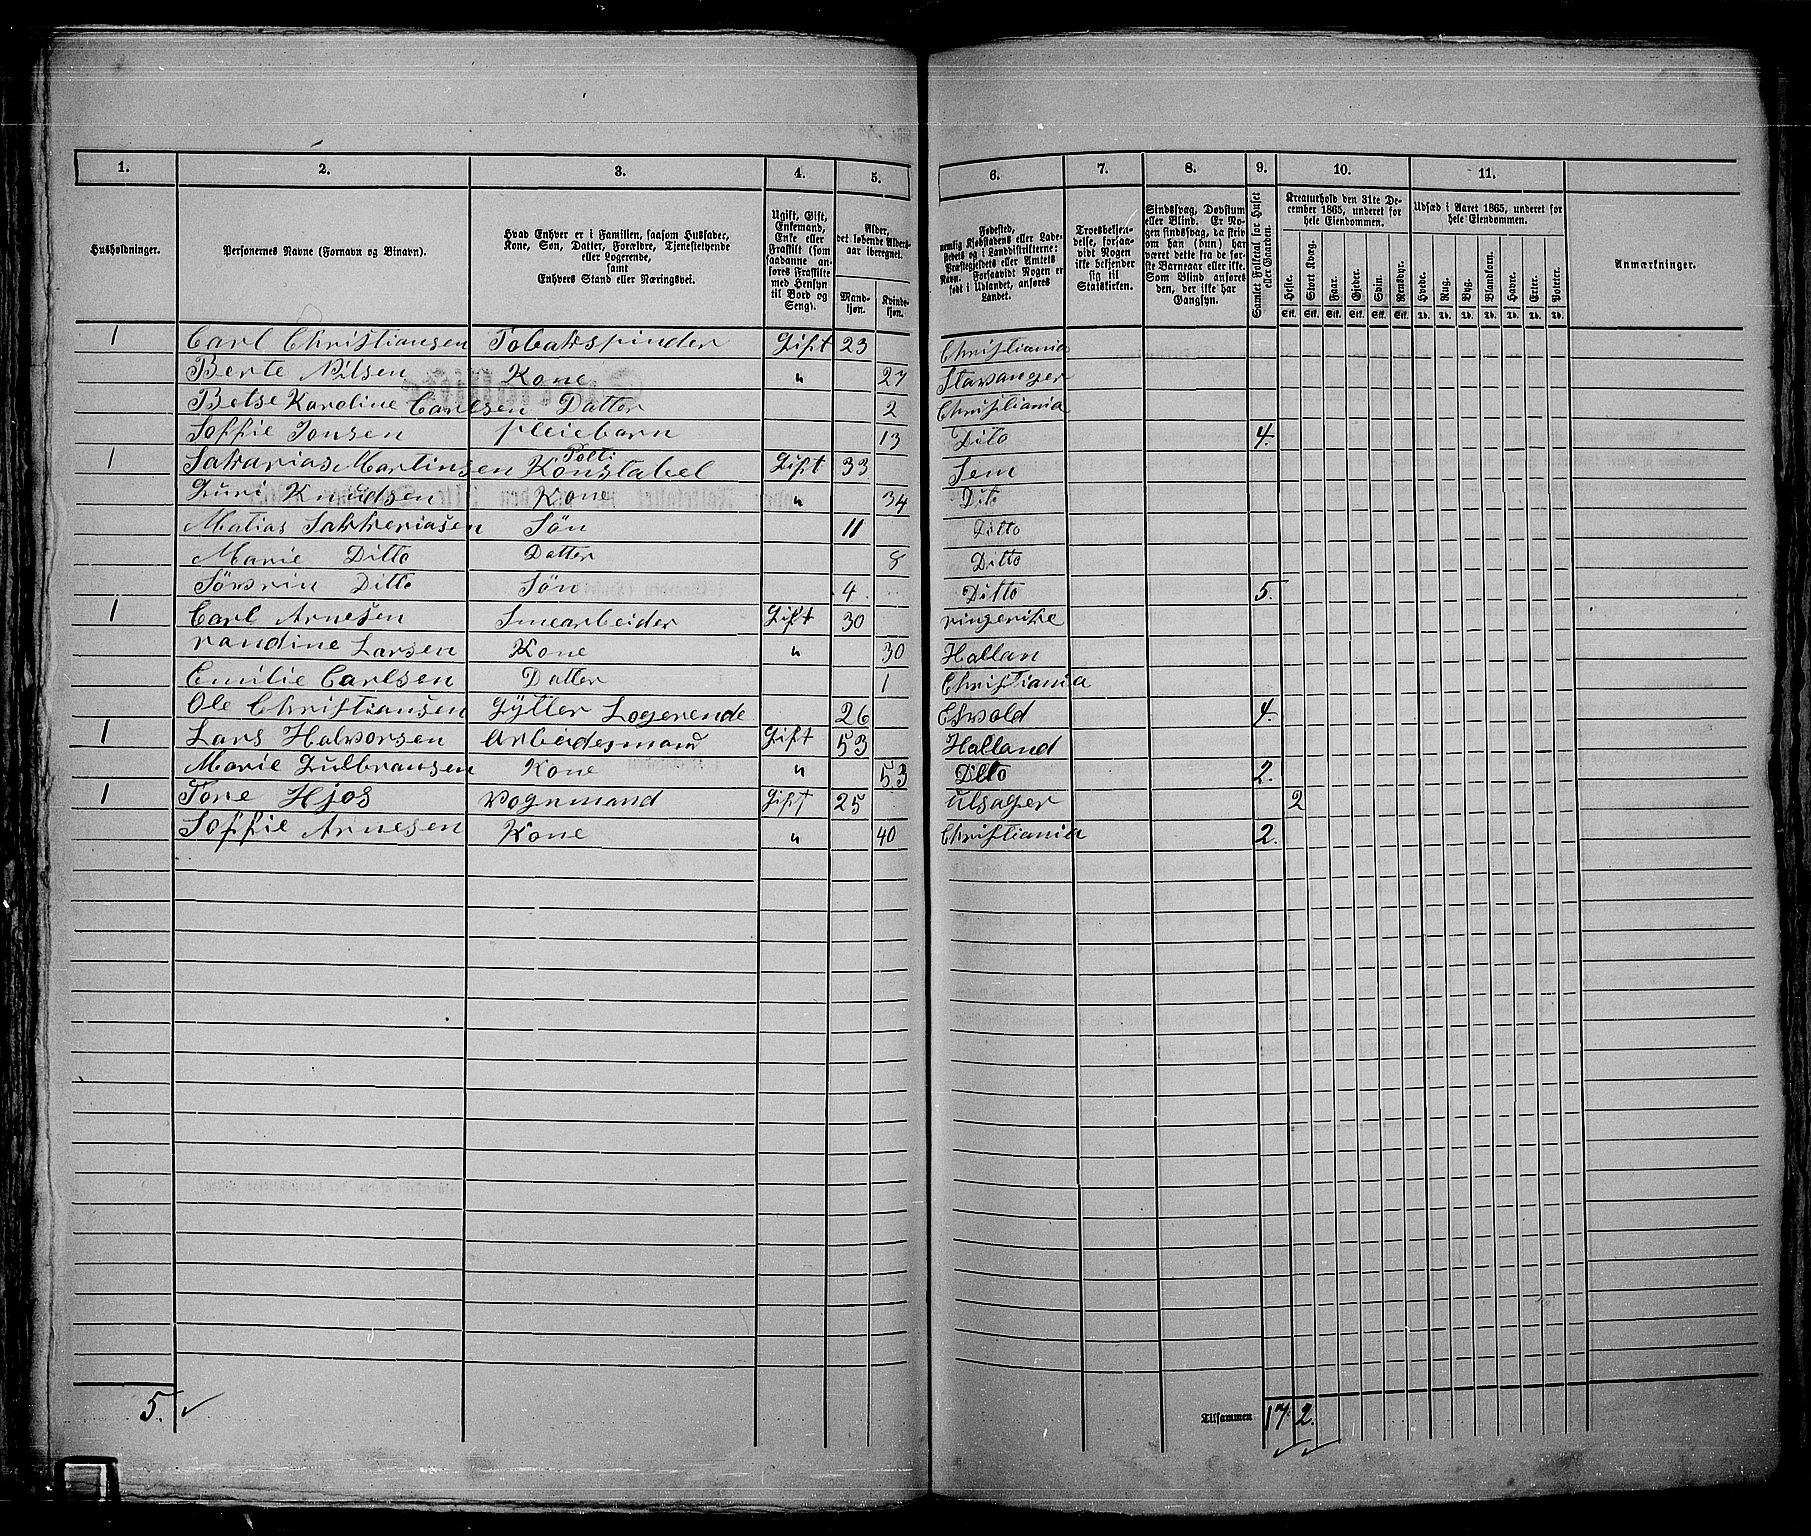 1. 2. 3. 4. 5. 6. 7. 8. 9. 10. 11.
Husholdninger.
Personernes Navne (Fornavn og Binavn).
Hvad Enhver er i Familien, saasom Husfader,
Kone, Søn, Datter, Forældre, Tjenestetyende
eller Logerende,
samt
Enhvers Stand eller Næringsvei.
Ugift, Gift,
Enkemand,
Enke eller
Fraskilt (som
saadanne an-
føres Fraskilte
med Hensyn
til Bord og
Seng).
Alder,
det løbende Alders-
aar iberegnet.
Mand-
kjøn.
Kvinde-
kjøn.
Fødested,
nemlig Kjøbstadens eller Lade-
stedets og i Landdistrikterne:
Præstegjeldets eller Amtets
Navn. Forsaavidt Nogen er
født i Udlandet, anføres
Landet.
Troesbekjen-
delse, forsaa-
vidt Nogen
ikke bekjender
sig til
Statskirken.
Sindssvag, Døvstum
eller Blind. Er No-
gen sindssvag, da skriv
om han (hun) har
været dette fra de før-
ste Barneaar eller ikke.
Som Blind anføres
den, der ikke har
Gangsyn.
Samlet Folketal for Huset
eller Gaarden.
Kreaturhold den 31te De-
cember 1865, underet for
hele Eiendommen.
Heste. Stort Kvæg. Faar. Gjeder. Svin. Rensdyr.
Stk. Stk. Stk. Stk. Stk. Stk.
Udsæd i Aaret 1865, underet for
hele Eiendommen.
Hvede. Rug. Byg. Blandkorn. Havre. Erter. Poteter.
Td. Td. Td. Td. Td. Td. Td.
Anmærkninger.
1 Carl Christiansen Tobakspinder Gift 23 Christiania
Berte Nilsen Kone " 27 Stavanger
Betse Karoline Carlsen Datter 2 Christiania
Soffie Jonsen pleiebarn 13 Dito 4.
1 Sakarias Martinsen Polti: Konstabel Gift 33 Sem
Guri Knudsen Kone " 34 Dito
Matias Sakkeriasen Søn 11 Ditto
Marie Ditto Datter 8 Ditto
Sørvrin Ditto Søn 4 Ditto 5.
1 Carl Arnesen Smearbeider Gift 30 ringerike
randine Larsen Kone " 30 Hallan
Emilie Carlsen Datter 1 Christiania
Ole Christiansen Gytler Logerende 26 Esvold 4.
1 Lars Halvorsen Arbeidesmand Gift 53 Halland
Marie Gulbransen Kone " 53 Ditto 2.
1 Tore Hjos vognmand Gift 25 Ulsager 2
Soffie Arnesen Kone " 40 Christiania 2.
5. Tilsammen 17 2.